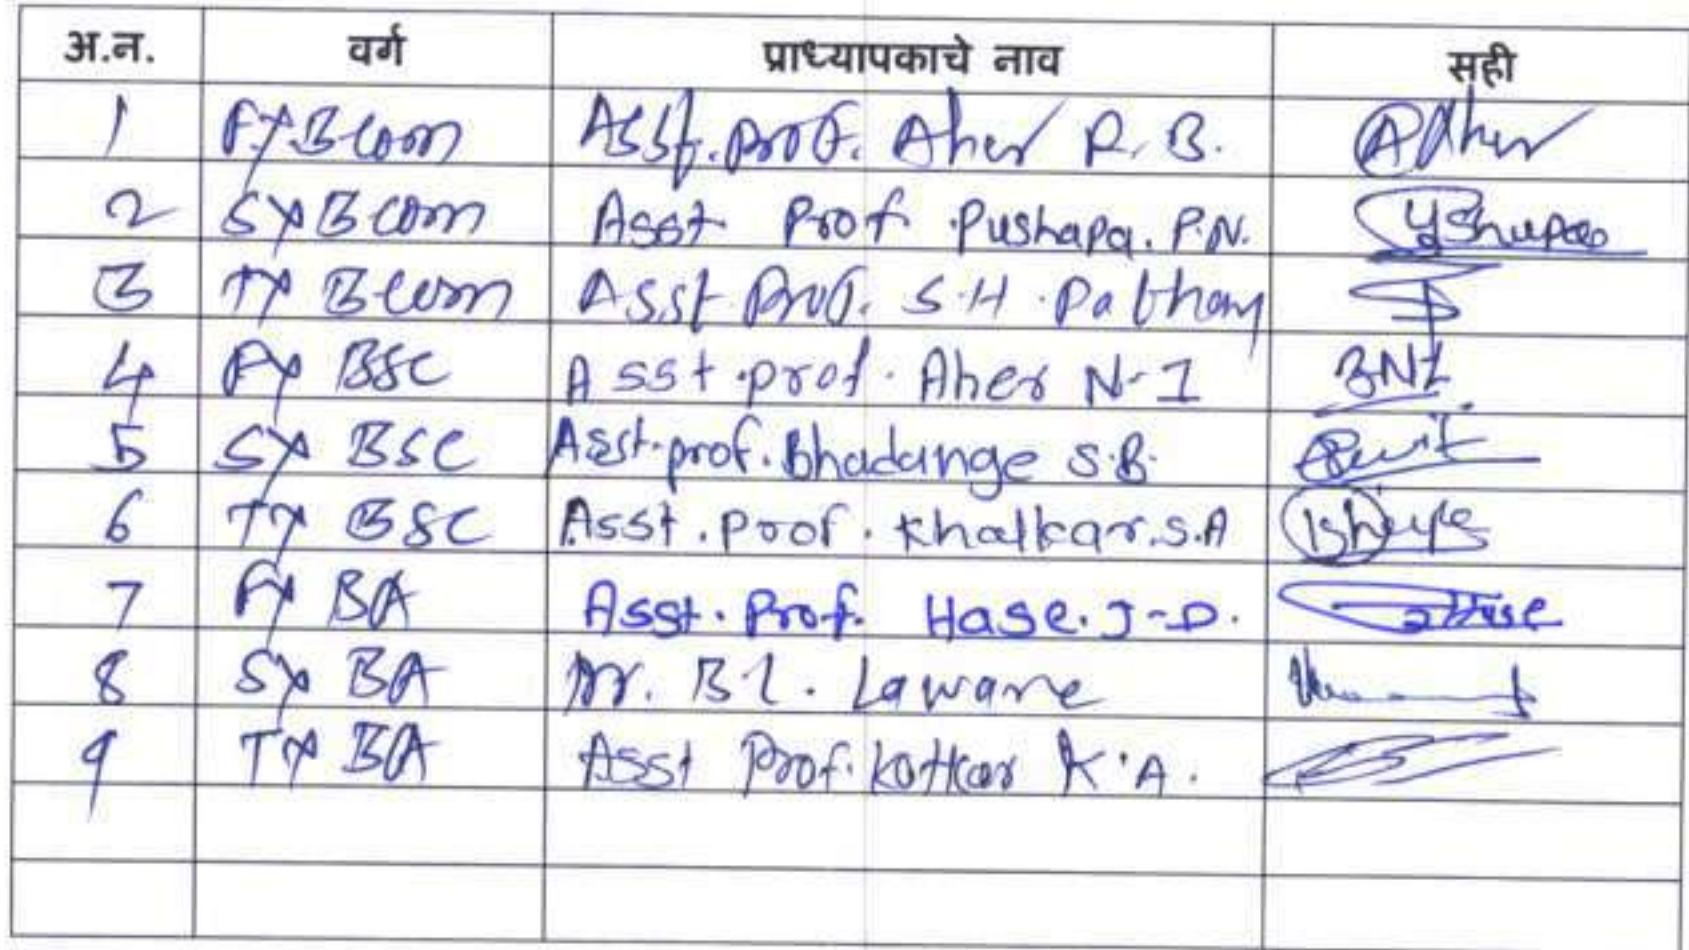 अ.न. वर्ग प्राध्यापकाचे नाव सही
1 FYBcom Asst. Prof. Aher R. B. Aher
2 SYBcom Asst Prof. Pushapa. P.N.
3 TY Bcom Asst Prof. S.H. Pathan
4 FY BSC Asst. prof. Aher N-I
5 SY BSC Asst. prof. Bhadange S.B.
6 TY BSC Asst. Prof. Khalkar. S.A
7 FY BA Asst. Prof. Hase. J-D. Hase
8 SY BA Dr. B L. Lawane
9 TY BA Asst Prof. Kotkar K.A.